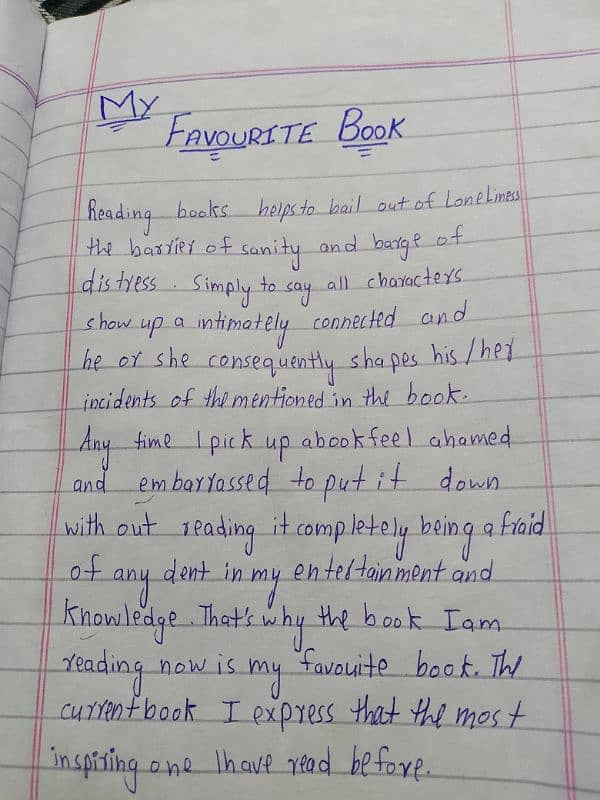 MY
FAVOURITE BOOK
Reading books helps to bail out of Loneliness
the barrier of sanity and barge of
distress. Simply to say all characters
show up a intimately connected and
he or she consequently shapes his/her
incidents of the mentioned in the book.
Any time I pick up a book feel ahamed
and embarrassed to put it down
with out reading it completely being afraid
of any dent in my entertainment and
knowledge. That's why the book I am
reading now is my favouite book. The
current book I express that the most
inspiring one I have read before.